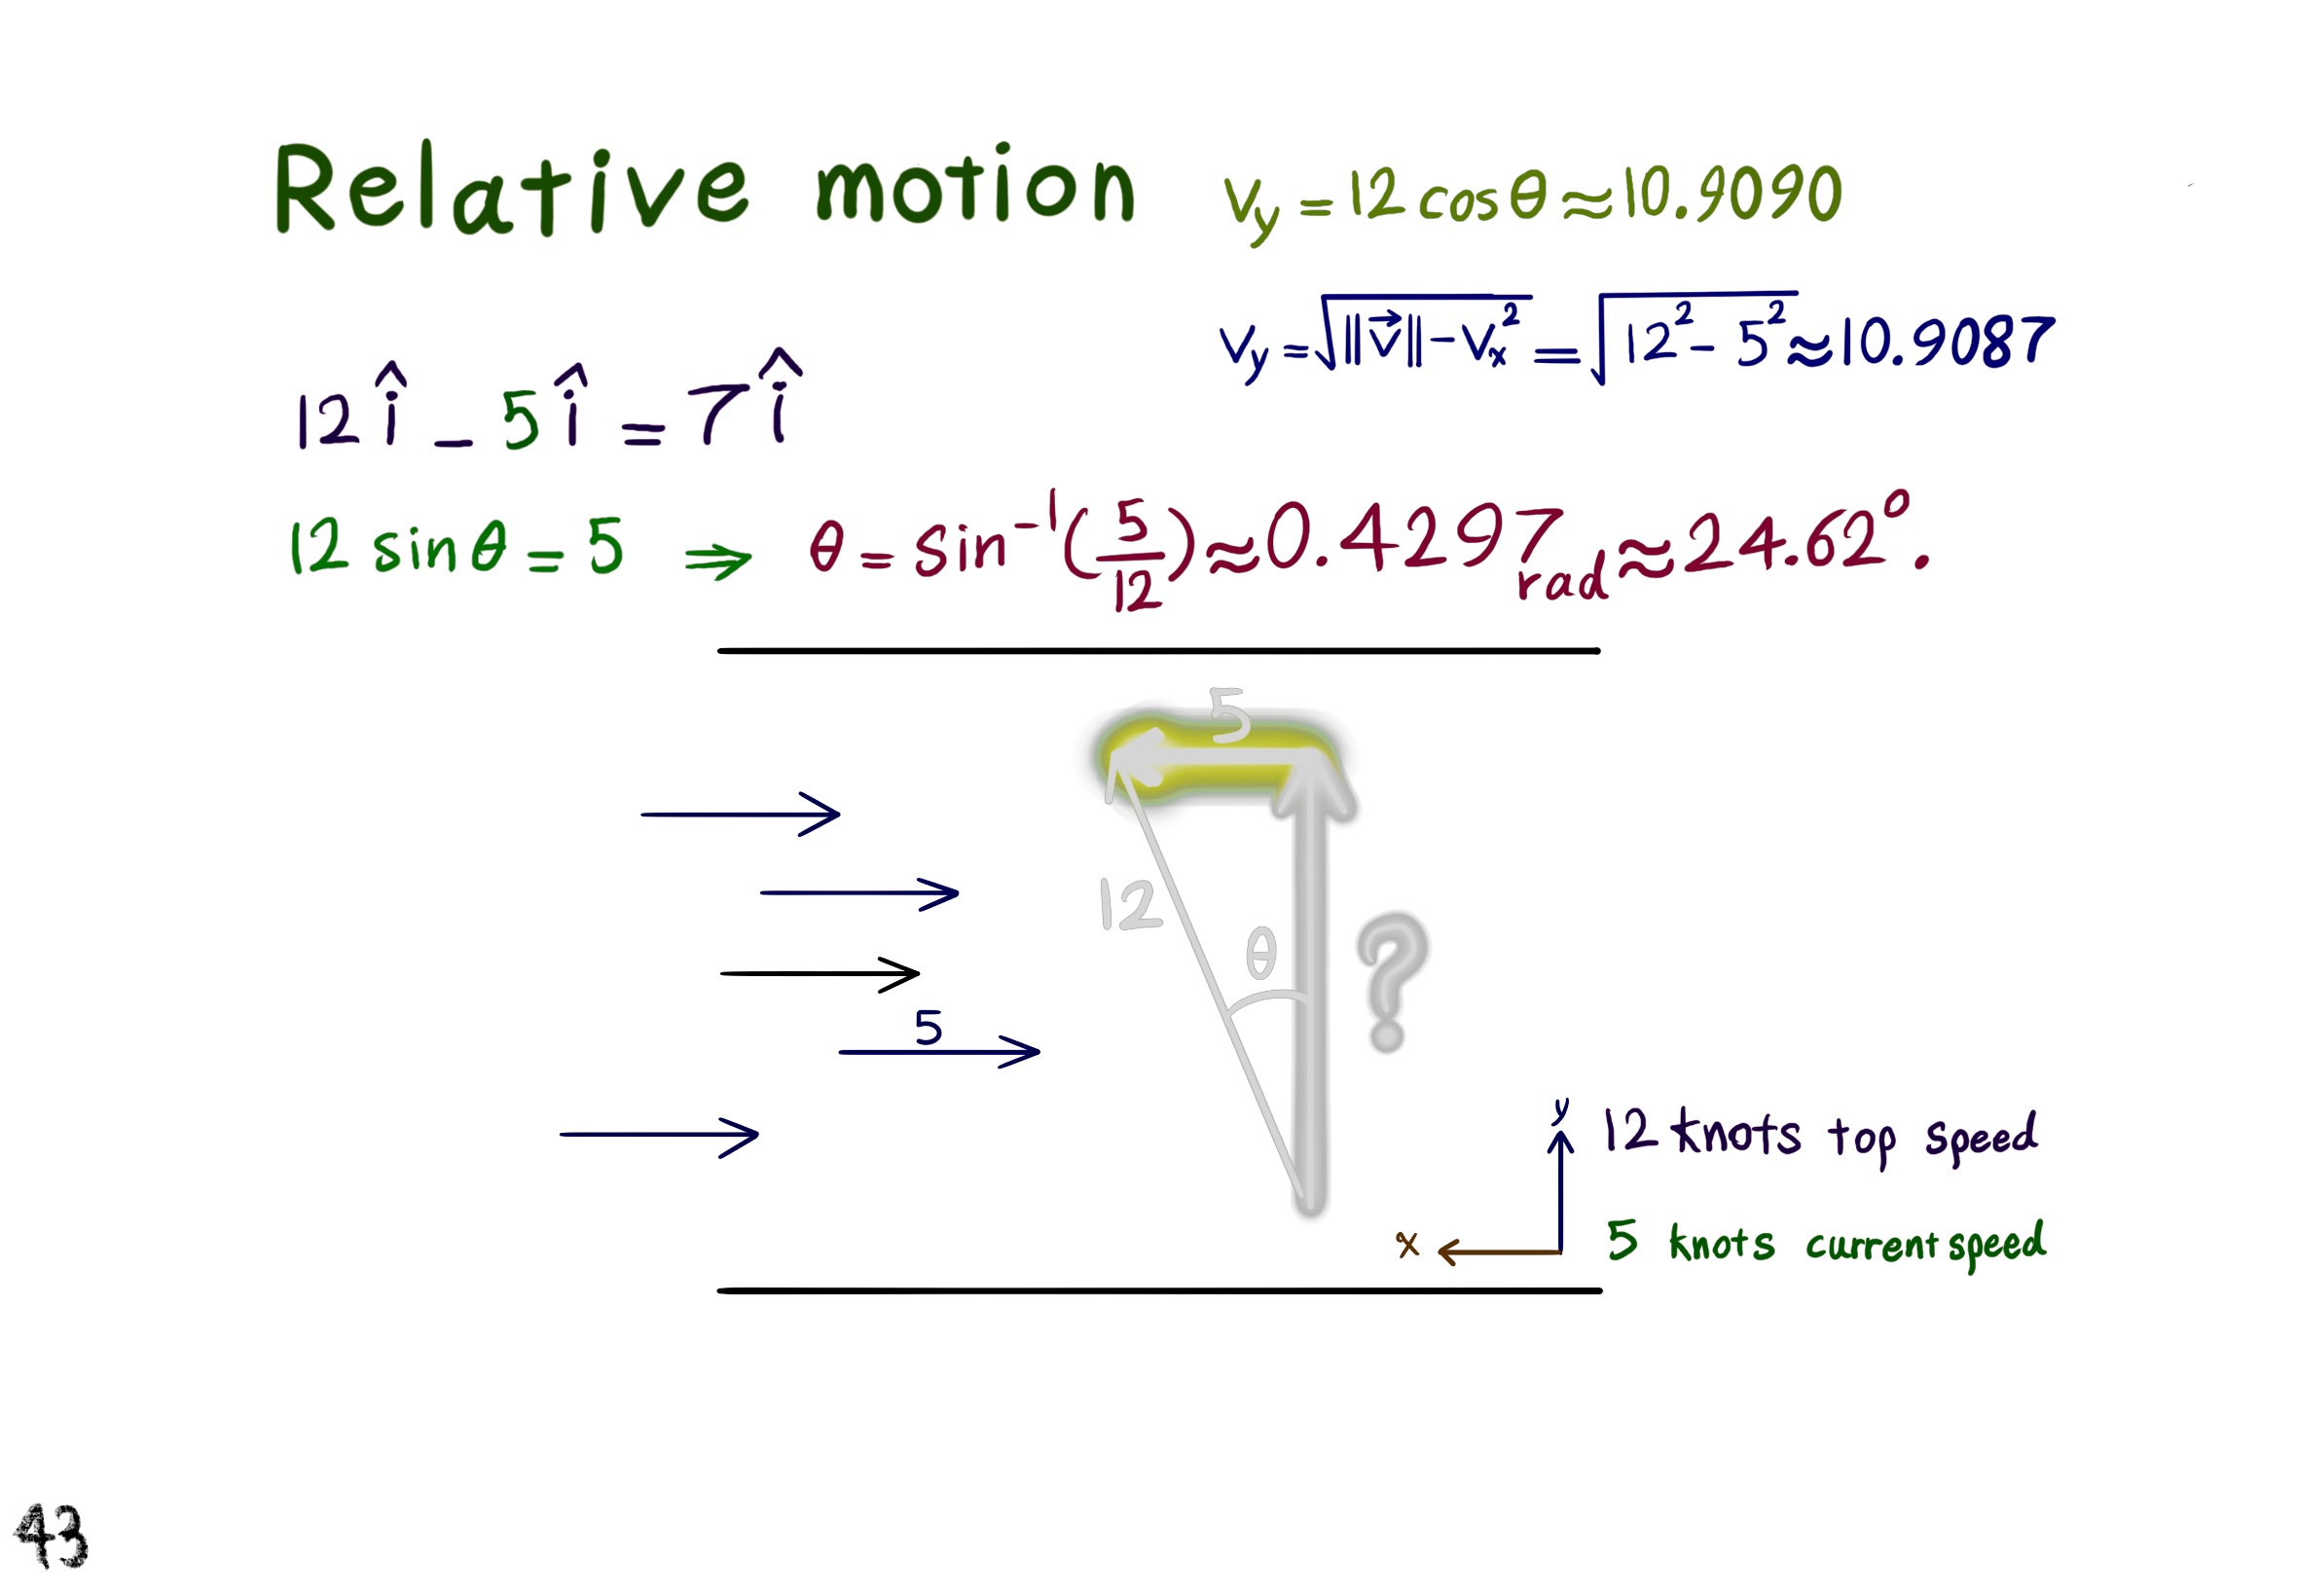 Relative motion
v_y = 12 cos θ ≈ 10.9090
v_y = √(‖v⃗‖ − v_x²) = √(12² − 5²) ≈ 10.9087
12 î − 5 î = 7 î
12 sin θ = 5 ⇒ θ = sin⁻¹(5/12) ≈ 0.4297 rad ≈ 24.62°.
5
12
θ
?
5
y
12 knots top speed
x
5 knots current speed
43